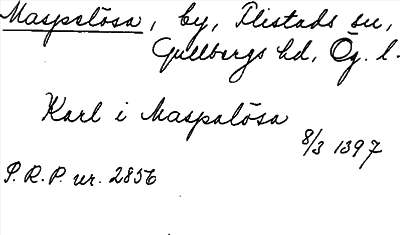 Maspelösa, by, Flistads sn,
Gullbergs hd, Ög. l.
Karl i Maspalösa
8/3 1397
P.R.P. nr. 2856